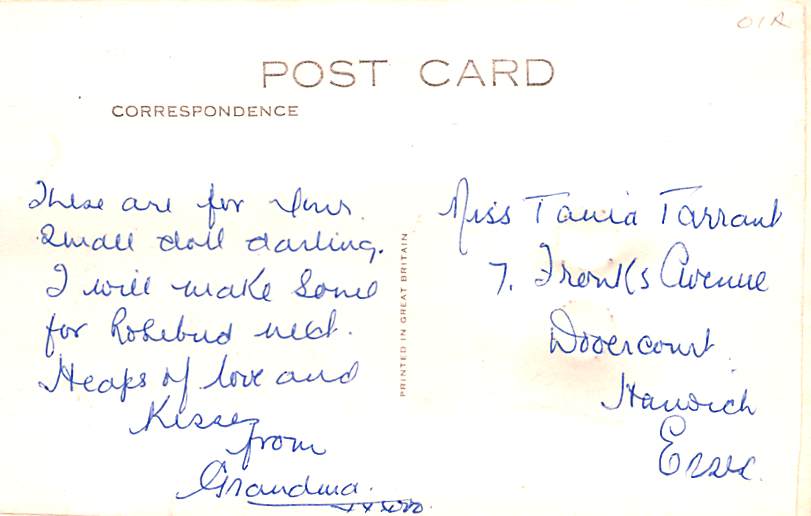 OIR
POST CARD
CORRESPONDENCE
These are for your
small doll darling.
I will make some
for Rosebud next.
Heaps of love and
Kisses
from
Grandma.
PRINTED IN GREAT BRITAIN
Miss Tania Tarrant
7. Fronks Avenue
Dovercourt.
Harwich
Essex.